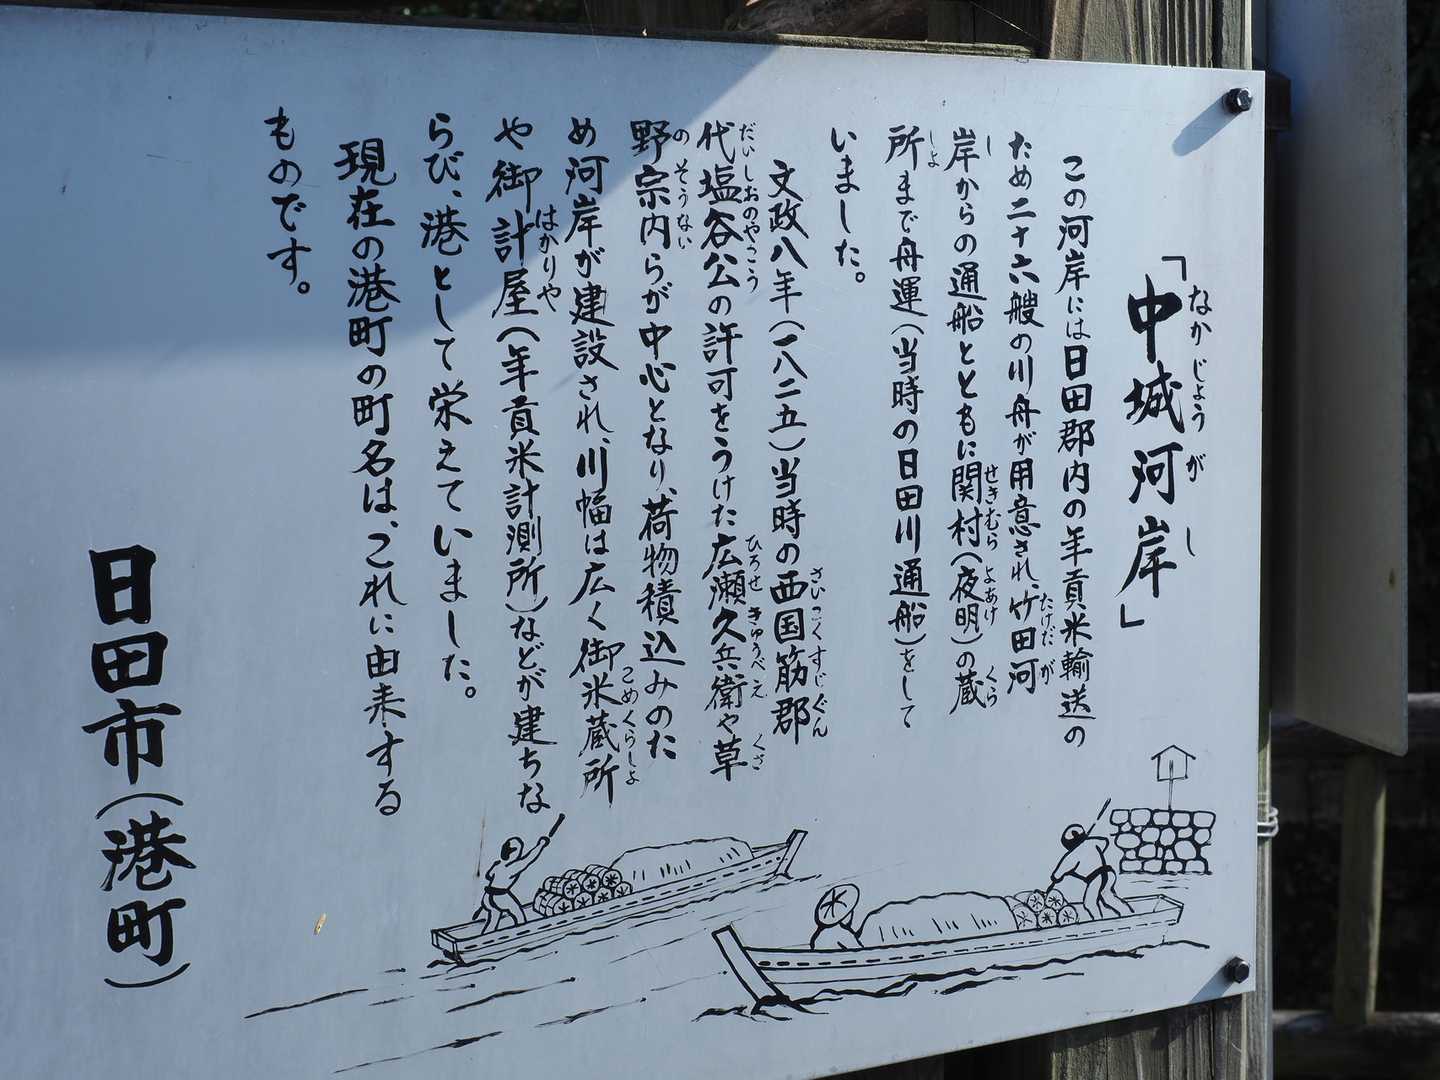 「中城河岸」
なかじょうがし
この河岸には日田郡内の年貢米輸送の
ため二十六艘の川舟が用意され、竹田河
たけだが
岸からの通船とともに関村(夜明)の蔵
し
せきむら
よあけ
くら
所まで舟運(当時の日田川通船)をして
しょ
いました。
文政八年(一八二五)当時の西国筋郡
さいこくすじぐん
代塩谷公の許可をうけた広瀬久兵衛や草
だいしおのやこう
ひろせきゅうべえ
くさ
野宗内らが中心となり、荷物積込みのた
のそうない
め河岸が建設され、川幅は広く御米蔵所
こめくらしょ
や御計屋(年貢米計測所)などが建ちな
はかりや
らび、港として栄えていました。
現在の港町の町名は、これに由来する
ものです。
日田市(港町)